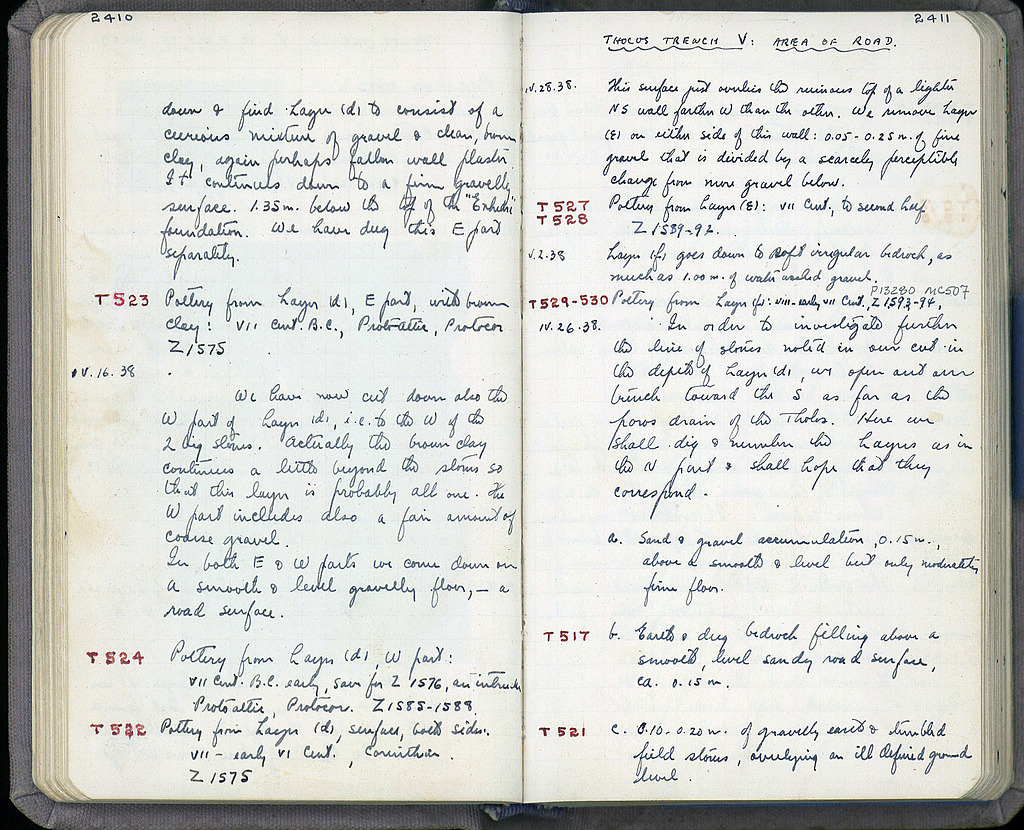 2410
down & find Layer (d) to consist of a
curious mixture of gravel & clean, brown
clay, again perhaps fallen wall plaster
It continues down to a firm gravelly
surface. 1.35m. below the top of the "Exhedra"
foundation. We have dug this E part
separately.
T523 Pottery from Layer (d), E part, with brown
clay: VII Cent. B.C., Protoattic, Protocor.
Z 1575
IV.16.38
We have now cut down also the
W part of Layer (d), i.e. to the W of the
2 big stones. Actually the brown clay
continues a little beyond the stones so
that this layer is probably all one. The
W part includes also a fair amount of
coarse gravel.
In both E & W parts we come down on
a smooth & level gravelly floor, – a
road surface.
T524 Pottery from Layer (d), W part:
VII Cent. B.C. early, save for Z 1576, an intruder
Protoattic, Protocor. Z1585-1588
T522 Pottery from Layer (d), surface, both sides.
VII – early VI Cent., Corinthian.
Z 1575
2411
THOLOS TRENCH V: AREA OF ROAD.
IV.28.38. This surface just overlies the ruinous top of a lighter
NS wall farther W than the other. We remove Layer
(E) on either side of this wall: 0.05 - 0.25 m. of fine
gravel that is divided by a scarcely perceptible
change from more gravel below.
T527 Pottery from Layer (E): VII Cent., to second half
T528 Z 1589-92.
V.2.38 Layer (f) goes down to soft irregular bedrock, as
much as 1.00 m. of water washed gravel.
P13280 MC507
T529-530 Pottery from Layer (f): VIII-early VII Cent. Z 1593-94.
IV.26.38. In order to investigate further
the line of stones noted in our cut in
the depth of Layer (d), we open out our
trench toward the S as far as the
poros drain of the Tholos. Here we
shall dig & number the Layers as in
the N part & shall hope that they
correspond.
a. Sand & gravel accumulation, 0.15 m.,
above a smooth & level but only moderately
firm floor.
T517 b. Earth & dug bedrock filling above a
smooth, level sandy road surface,
ca. 0.15 m.
T521 c. 0.10-0.20 m. of gravelly earth & tumbled
field stones, overlying an ill defined ground
level.